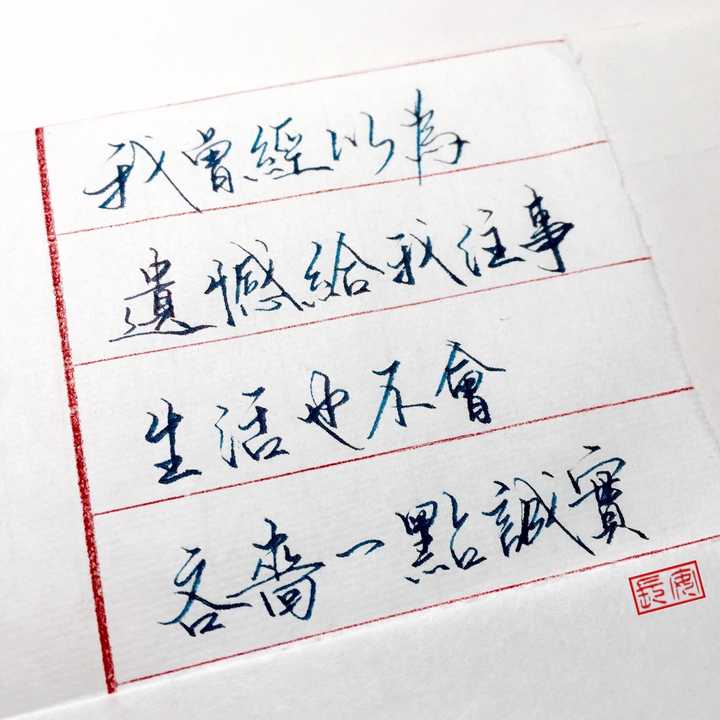 我曾經以為
遺憾給我往事
生活也不會
吝嗇一點誠實